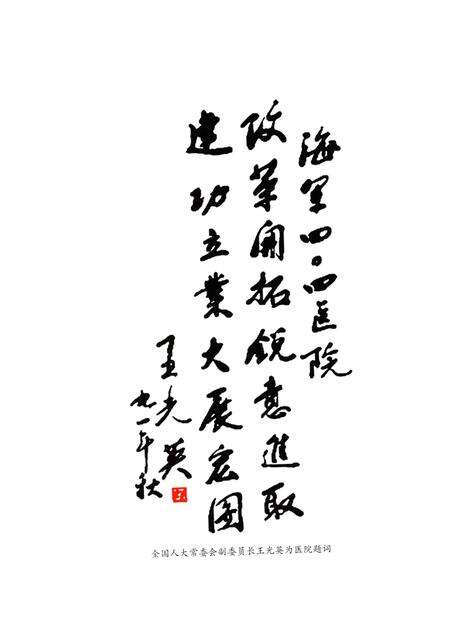 海军四〇四医院
改革开拓锐意進取
建功立業大展宏图
王光英
九一年秋
全国人大常委会制委员长王光英为医院题词